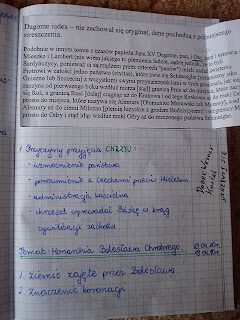 Dagome iudex – nie zachował się oryginał, dane pochodzą z późniejszego
streszczenia.
Podobnie w innym tomie z czasów papieża Jana XV Dagome, pan, i Ote, pani, i synowie
Mieszko i Lambert (nie wiem jakiego to plemienia ludzie, sądzę jednak, że to byli
Sardyńczycy, ponieważ ci są rządzeni przez czterech "panów") mieli nadać świętemu
Piotrowi w całości jedno państwo (civitas), które zwie się Schinesghe
Gniezno lub Szczecin] z wszystkimi swymi przynależnościami w tych granicach, jak się
zaczyna od pierwszego boku wzdłuż morza [stąd] granicą Prus aż do miejsca, które nazywa
się Ruś, a granicą Rusi [dalej] ciągnąc aż do Krakowa i od tego Krakowa aż do rzeki Odry,
prosto do miejsca, które nazywa się Alemure [Ołomuniec Morawski lub Morawy], a od tej
Alemury aż do ziemi Milczan [
prosto do Odry i stąd idąc wzdłuż rzeki Odry aż do rzeczonego państwa Schinesghe.
1. Przyczyny przyjęcia CHRZTU:
- wzmocnienie państwa
- porozumienie z Czechami przeciw
- administracja kościelna
- chrzest wprowadził Polskę w krąg
cywilizacji zachodu
Temat: Monarchia Bolesława Chrobrego
1. Ziemie zajęte przez Bolesława.
2. Znaczenie koronacji